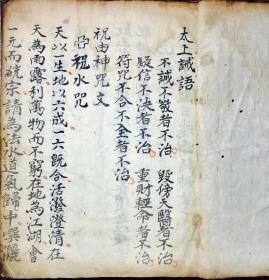 太上誡語
不誠不敬者不治　毀傍天醫者不治
疑信不決者不治　重財輕命者不治
符咒不合不全者不治
祝由神咒文
亞祝水咒
天以一生地以六成一六既合活潑澄清在
天為雨露利萬物而不窮在地為江湖會
一元而統宗請為法水道氣歸中噀灑